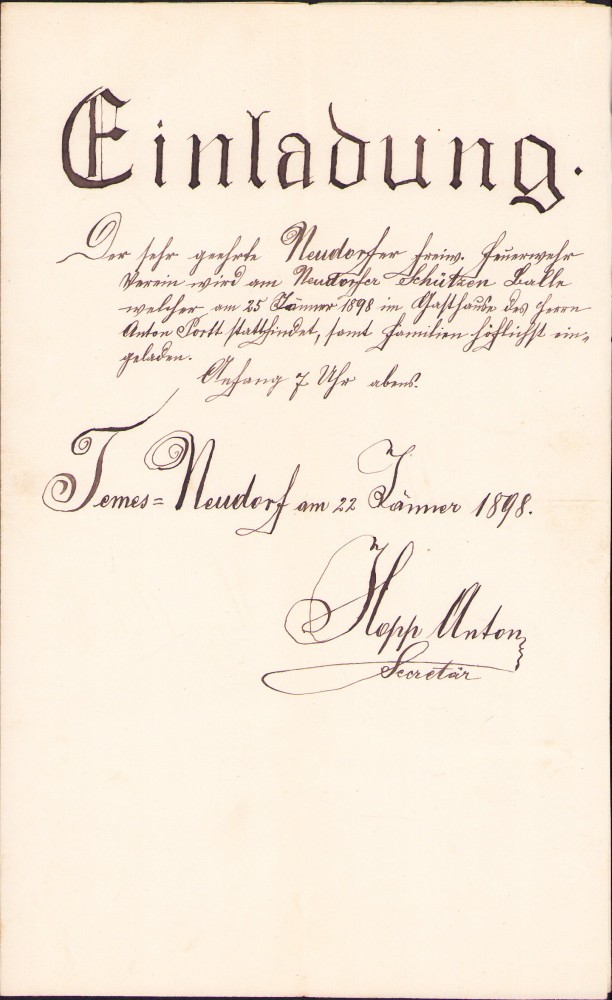 Einladung.
Der sehr geehrte Neudorfer freiw. Feuerwehr
Verein wird am Neudorfer Schützen Balle
welcher am 25 Jänner 1898 im Gasthause des Herrn
Anton Portt stattfindet, samt Familien höflichst ein-
geladen.
Anfang 7 Uhr abens.
Temes=Neudorf am 22 Jänner 1898.
Hopp Anton
Secretär